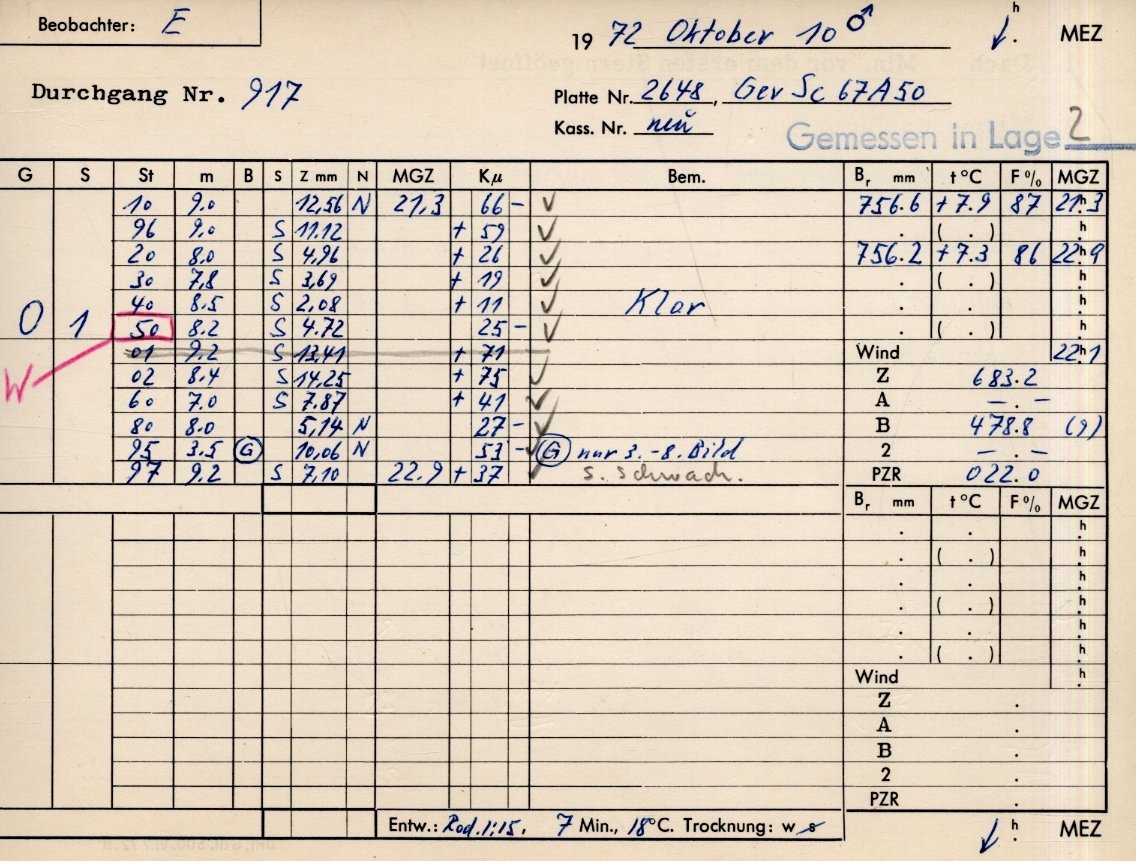 Beobachter: E
1972 Oktober 10 ♂ h. MEZ
Durchgang Nr. 917
Platte Nr. 2648, Gev Sc 67A50
Kass. Nr. neu
Gemessen in Lage 2
G S St m B S Z mm N MGZ Kμ Bem. Br mm t °C F % MGZ
10 9.0 12,56 N 21,3 66 – ✓ 756.6 +7.9 87 21h3
96 9.0 S 11.12 + 59 ✓ . ( . ) h.
20 8.0 S 4,96 + 26 ✓ 756.2 +7.3 86 22h9
30 7,8 S 3,69 + 19 ✓ . ( . ) h.
40 8.5 S 2,08 + 11 ✓ Klar . . h.
0 1 50 8.2 S 4.72 25 – ✓ . ( . ) h.
01 9.2 S 13,41 + 71 Wind 22h1
W 02 8.4 S 14,25 + 75 ✓ Z 683.2
60 7.0 S 7.87 + 41 ✓ A – . –
80 8.0 5,14 N 27 – ✓ B 478.8 (9)
95 3.5 G 10,06 N 53 – G nur 3.-8. Bild 2 – . –
97 9.2 S 7,10 22.9 + 37 ✓ s. schwach. PZR 022.0
Br mm t °C F % MGZ
. . h.
. ( . ) h.
. . h.
. ( . ) h.
. . h.
. ( . ) h.
Wind h.
Z .
A .
B .
2 .
PZR .
Entw.: Rod. 1:15, 7 Min., 18°C. Trocknung: w s h. MEZ